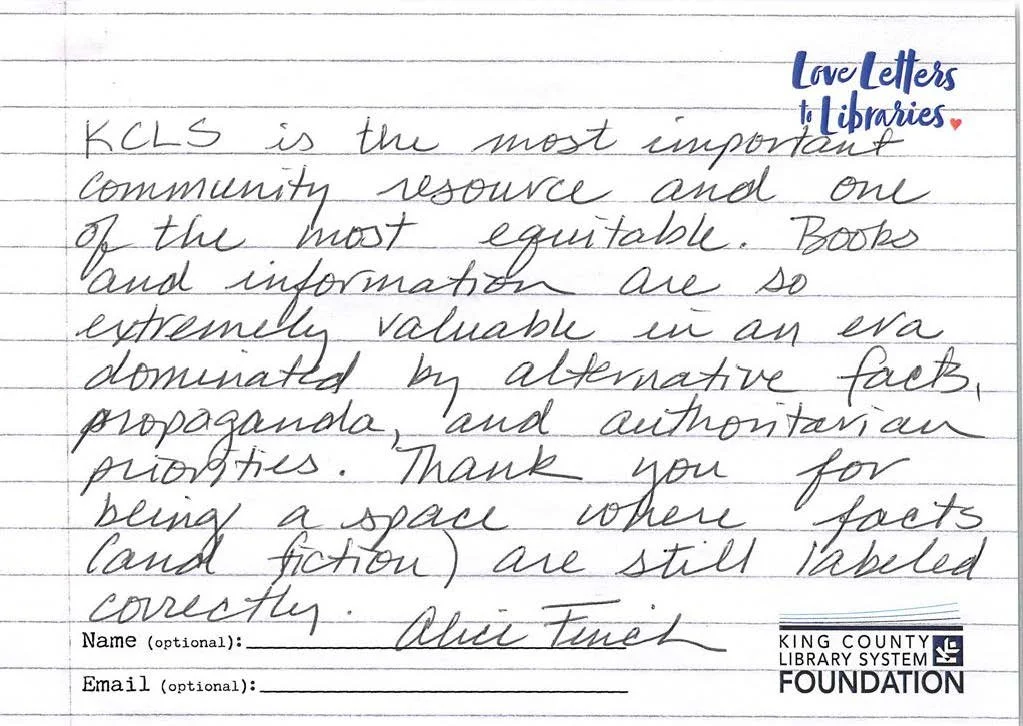 Love Letters
to Libraries
KCLS is the most important
community resource and one
of the most equitable. Books
and information are so
extremely valuable in an era
dominated by alternative facts,
propaganda, and authoritarian
priorities. Thank you for
being a space where facts
(and fiction) are still labeled
correctly.
Name (optional): Alice Finch
Email (optional):
KING COUNTY
LIBRARY SYSTEM
FOUNDATION